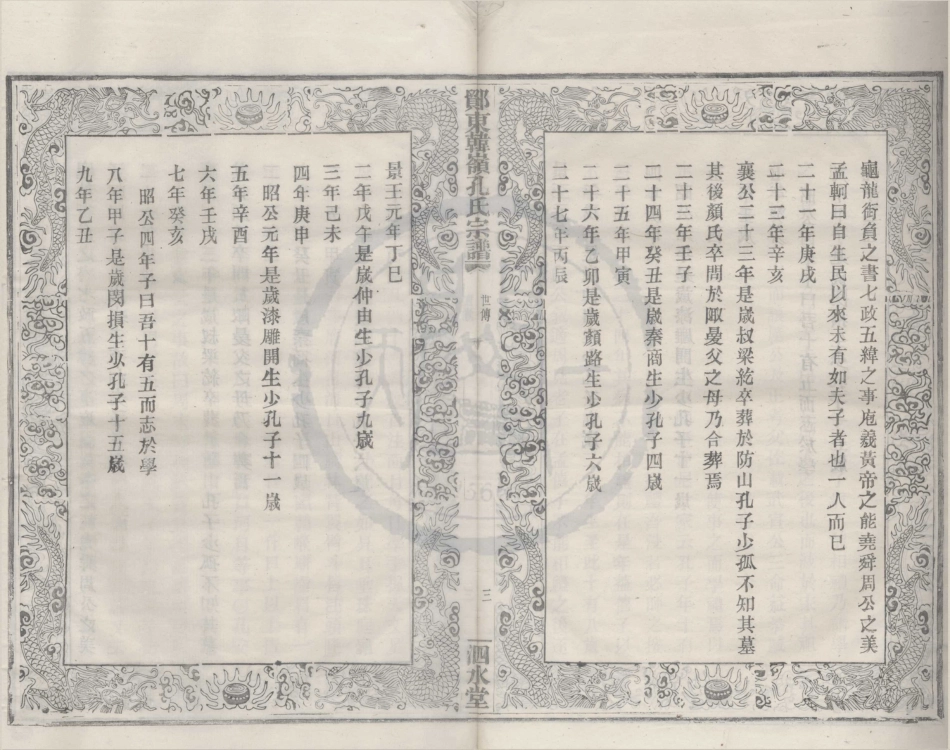 龜龍銜負之書七政五緯之事庖羲黃帝之能堯舜周公之美
孟軻曰自生民以來未有如夫子者也一人而已
二十一年庚戌
二十二年辛亥
襄公二十三年是歲叔梁紇卒葬於防山孔子少孤不知其墓
其後顏氏卒問於郰曼父之母乃合葬焉
二十三年壬子
二十四年癸丑是歲秦商生少孔子四歲
二十五年甲寅
二十六年乙卯是歲顏路生少孔子六歲
二十七年丙辰
鄮東韓嶺孔氏宗譜
世傳
三
泗水堂
景王元年丁巳
二年戊午是歲仲由生少孔子九歲
三年己未
四年庚申
昭公元年是歲漆雕開生少孔子十一歲
五年辛酉
六年壬戌
七年癸亥
昭公四年子曰吾十有五而志於學
八年甲子是歲閔損生少孔子十五歲
九年乙丑